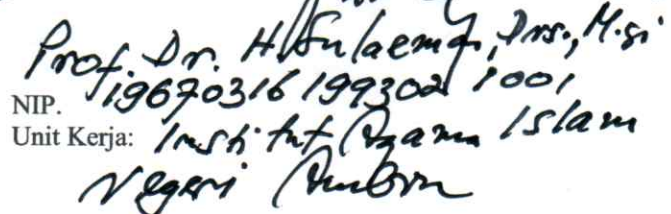 Prof. Dr. H. Sulaeman, Drs., M.si
NIP. 19670316 199302 1 001
Unit Kerja: Institut Agama Islam
Negeri Ambon